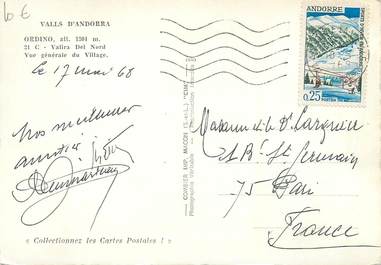 6 €
VALLS D'ANDORRA
ORDINO, alt. 1304 m.
21 C - Valira Del Nord
Vue générale du Village.
Le 17 mai 68
Nos meilleures
amitiés
« Collectionnez les Cartes Postales ! »
COMBIER IMP. MACON (S.-et-L.) "CIM"
ANDORRE
0,25
Mademoiselle
St Germain
75 Paris
France